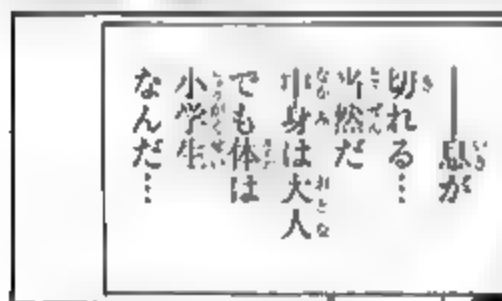 ――息が
切れる…
当然だ
中身は大人
でも体は
小学生
なんだ…